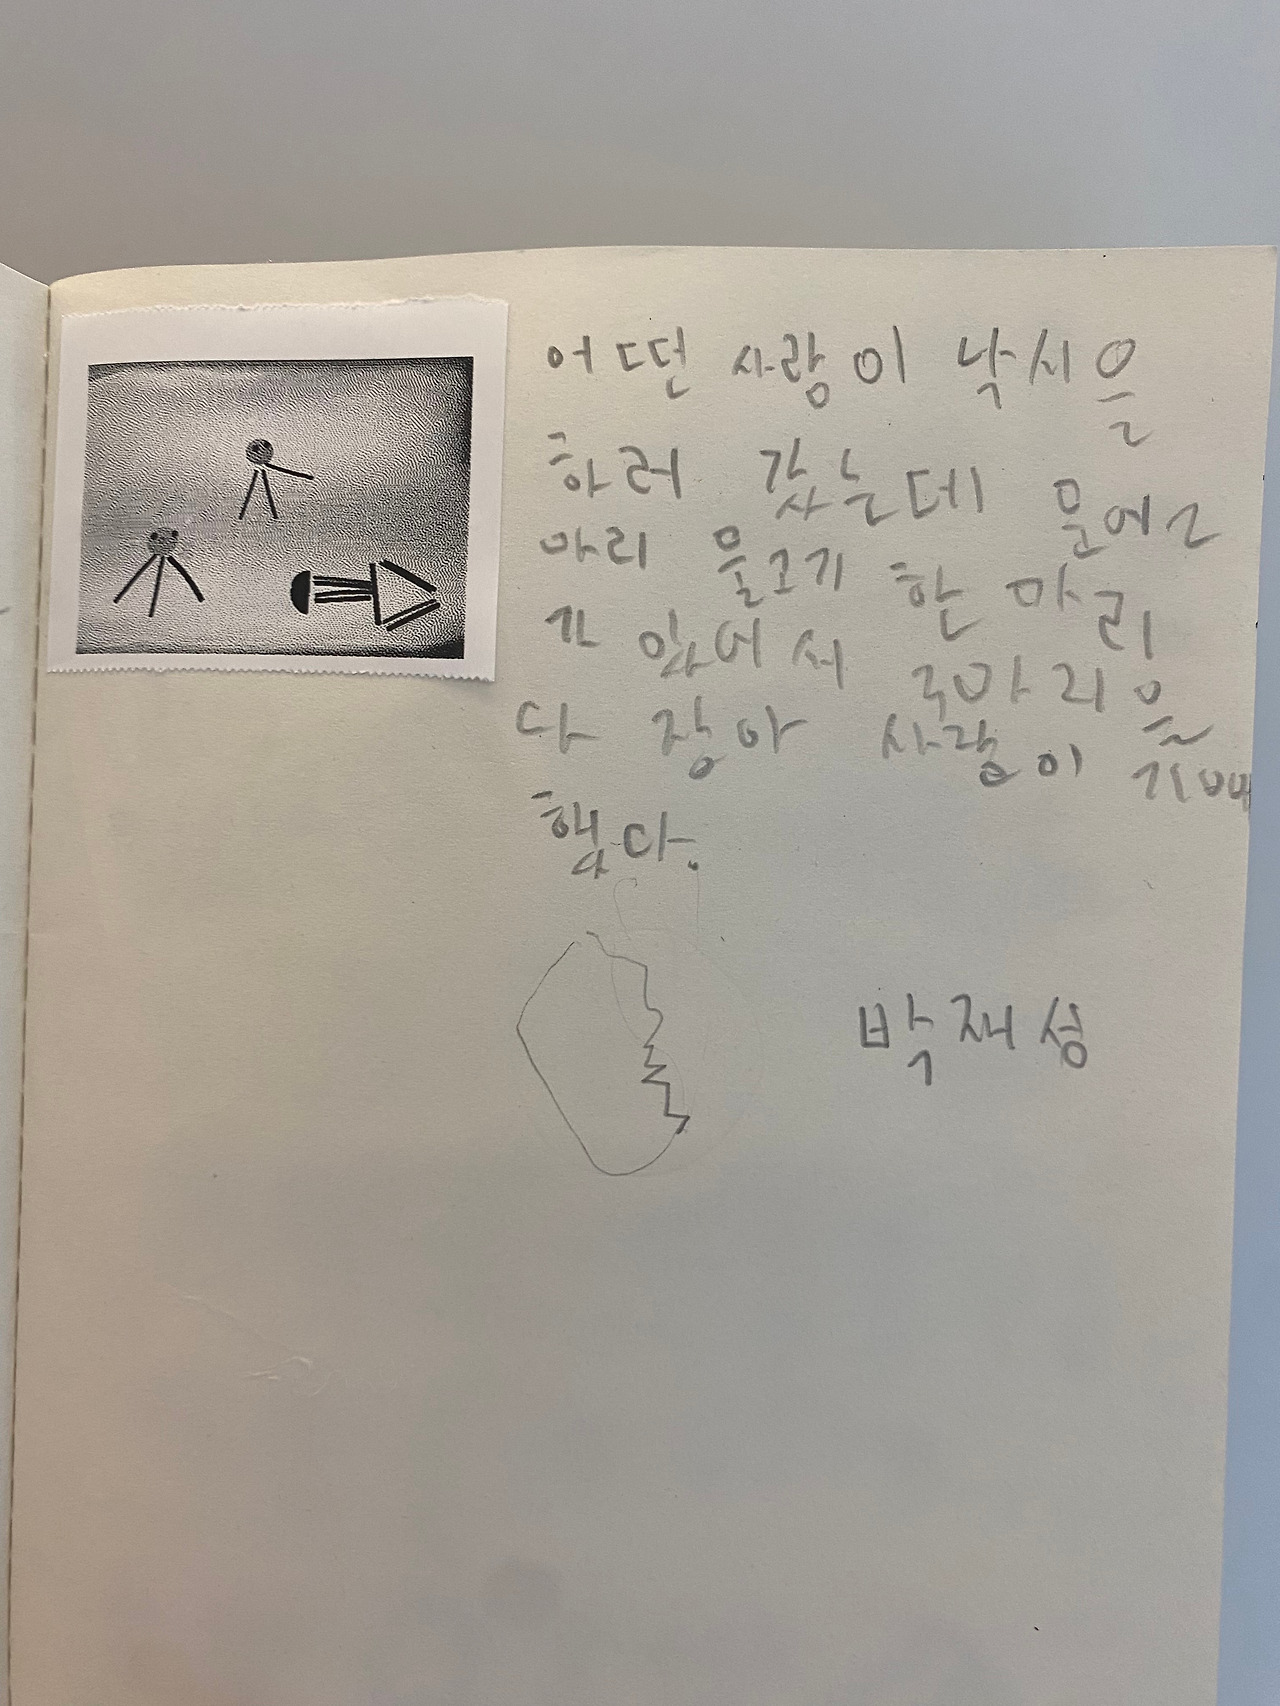 어떤 사람이 낙시을
하러 갔는데 문에2
마리 물고기 한 마리
가 있어서 두마리을
다 잡아 사람이 기뻐
했다.
박재성